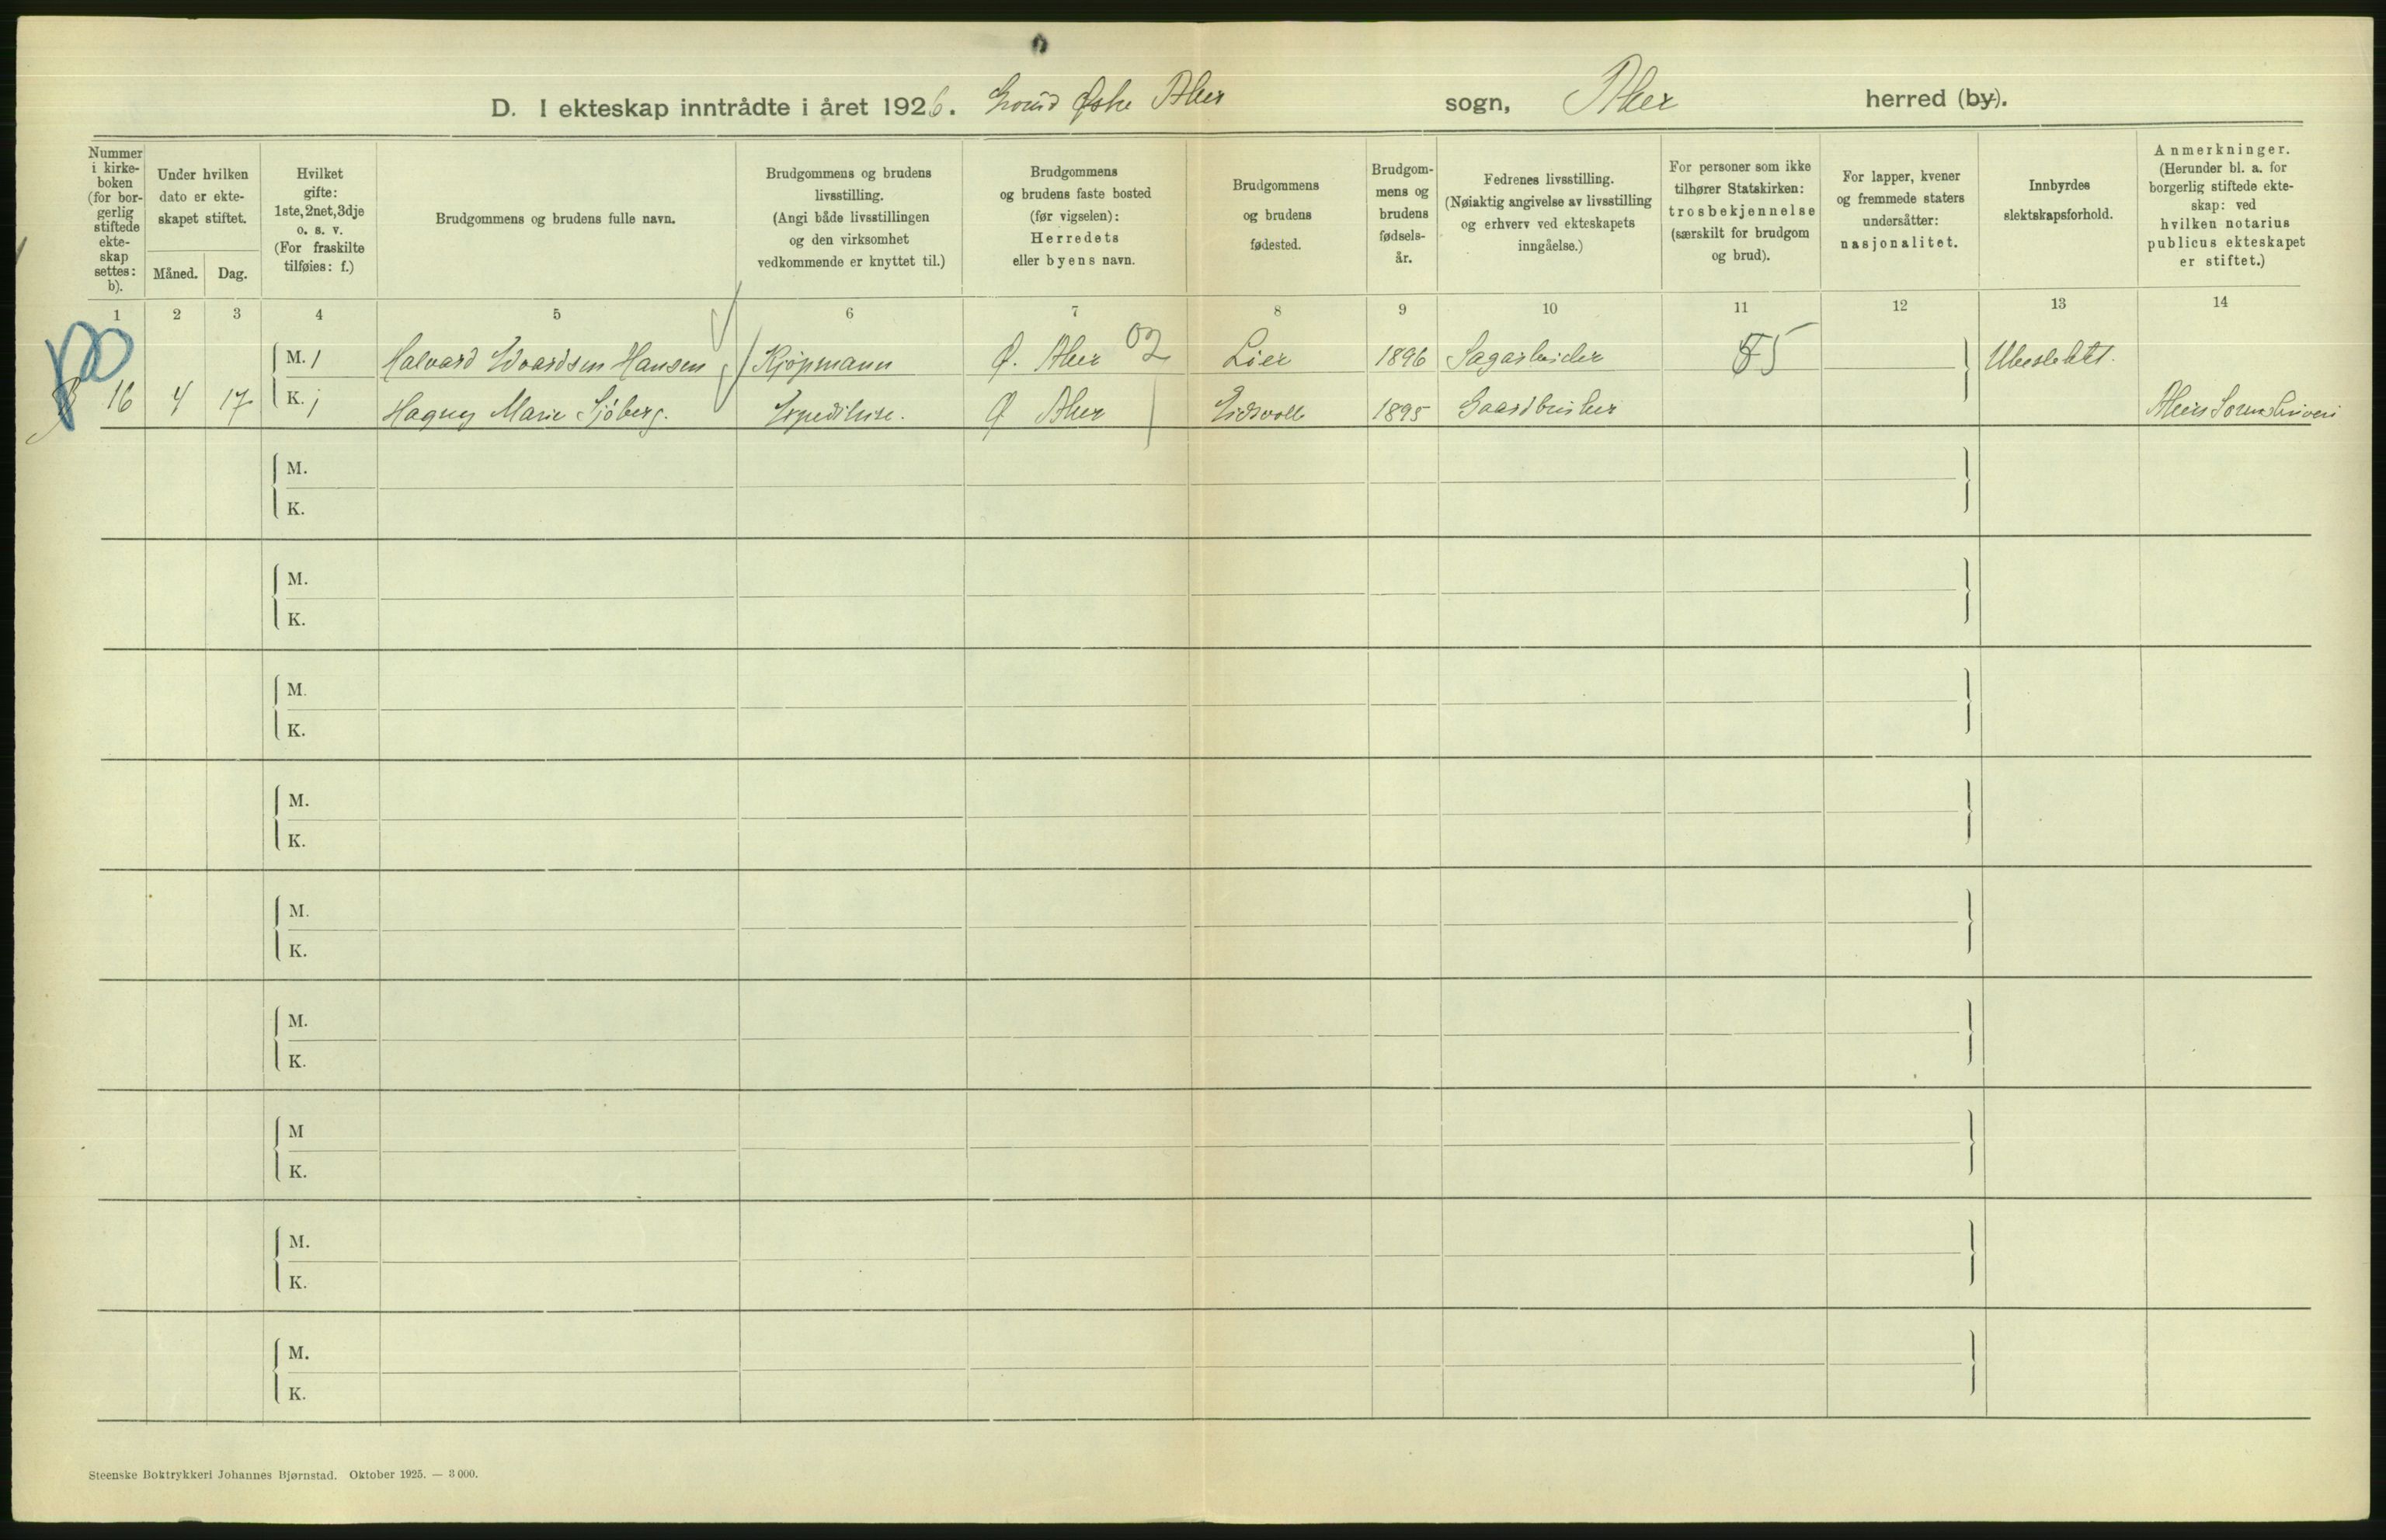 D. I ekteskap inntrådte i året 1926. Grorud Østre Aker sogn, Aker herred (by).
Nummer i kirke- boken (for bor- gerlig stiftede ekte- skap settes: b).
Under hvilken dato er ekte- skapet stiftet.
Måned. Dag.
Hvilket gifte: 1ste, 2net, 3dje o. s. v. (For fraskilte tilføies: f.)
Brudgommens og brudens fulle navn.
Brudgommens og brudens livsstilling. (Angi både livsstillingen og den virksomhet vedkommende er knyttet til.)
Brudgommens og brudens faste bosted (før vigselen): Herredets eller byens navn.
Brudgommens og brudens fødested.
Brudgom- mens og brudens fødsels- år.
Fedrenes livsstilling. (Nøiaktig angivelse av livsstilling og erhverv ved ekteskapets inngåelse.)
For personer som ikke tilhører Statskirken: trosbekjennelse (særskilt for brudgom og brud).
For lapper, kvener og fremmede staters undersåtter: nasjonalitet.
Innbyrdes slektskapsforhold.
Anmerkninger. (Herunder bl. a. for borgerlig stiftede ekte- skap: ved hvilken notarius publicus ekteskapet er stiftet.)
1 2 3 4 5 6 7 8 9 10 11 12 13 14
M. 1 Halvard Edvardsen Hansen Kjøpmann Ø. Aker 02 Lier 1896 Sagarbeider 85 Ubeslektet.
B 16 4 17 K. 1 Hagny Marie Sjøberg. Expeditrise. Ø Aker Eidsvoll 1895 Gaardbruker Akers Sorenskriveri
M.
K.
M.
K.
M.
K.
M.
K.
M.
K.
M.
K.
M
K.
M.
K.
M.
K.
Steenske Boktrykkeri Johannes Bjørnstad. Oktober 1925. — 3 000.